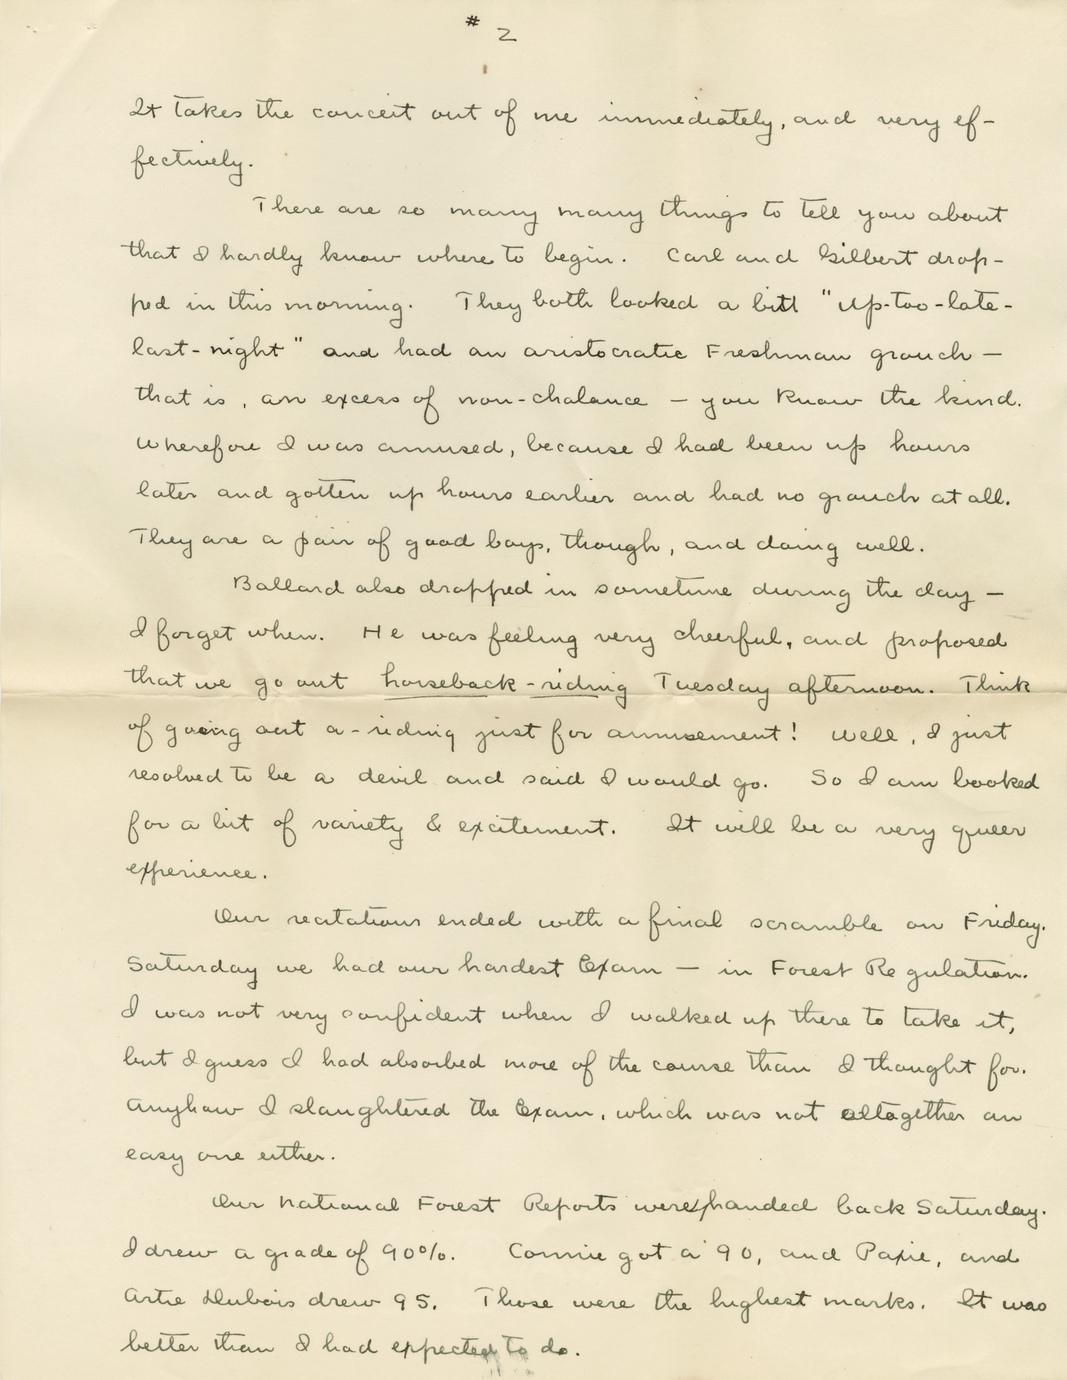 # 2
It takes the conceit out of me immediately, and very ef-
fectively.
There are so many many things to tell you about
that I hardly know where to begin. Carl and Gilbert drop-
ped in this morning. They both looked a bitt "up-too-late-
last-night" and had an aristocratic Freshman grouch —
that is, an excess of non-chalance — you know the kind.
Wherefore I was amused, because I had been up hours
later and gotten up hours earlier and had no grouch at all.
They are a pair of good boys, though, and doing well.
Ballard also dropped in sometime during the day —
I forget when. He was feeling very cheerful, and proposed
that we go out horseback-riding Tuesday afternoon. Think
of going out a-riding just for amusement! Well, I just
resolved to be a devil and said I would go. So I am booked
for a bit of variety & excitement. It will be a very queer
experience.
Our recitations ended with a final scramble on Friday.
Saturday we had our hardest Exam — in Forest Regulation.
I was not very confident when I walked up there to take it,
but I guess I had absorbed more of the course than I thought for.
Anyhow I slaughtered the Exam, which was not altogether an
easy one either.
Our National Forest Reports were handed back Saturday.
I drew a grade of 90%. Connie got a 90, and Paxie, and
Artie Dubois drew 95. Those were the highest marks. It was
better than I had expected to do.